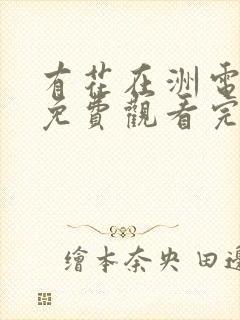 有花在洲電
免費觀看完
繪本奈央 田邊